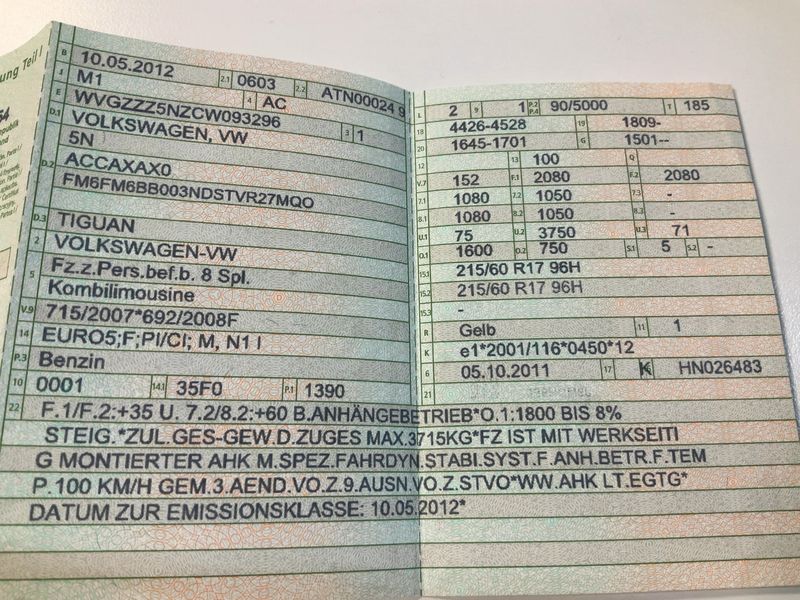 ung Teil I
B 10.05.2012 2.1 0603 2.2 ATN00024 9
J M1 4 AC
E WVGZZZ5NZCW093296 3 1
D.1 VOLKSWAGEN, VW
5N
D.2 ACCAXAX0
FM6FM6BB003NDSTVR27MQO
D.3 TIGUAN
2 VOLKSWAGEN-VW
5 Fz.z.Pers.bef.b. 8 Spl.
Kombilimousine
V.9 715/2007*692/2008F
14 EURO5;F;PI/CI; M, N1 I
P.3 Benzin
10 0001 14.1 35F0 P.1 1390
L 2 9 1 P.2 P.4 90/5000 T 185
18 4426-4528 19 1809-
20 1645-1701 G 1501--
12 13 100 Q
V.7 152 F.1 2080 F.2 2080
7.1 1080 7.2 1050 7.3 -
8.1 1080 8.2 1050 8.3 -
U.1 75 U.2 3750 U.3 71
O.1 1600 O.2 750 S.1 5 S.2 -
15.1 215/60 R17 96H
15.2 215/60 R17 96H
15.3 -
R Gelb 11 1
K e1*2001/116*0450*12
6 05.10.2011 17 K HN026483
21
22 F.1/F.2:+35 U. 7.2/8.2:+60 B.ANHÄNGEBETRIEB*O.1:1800 BIS 8%
STEIG.*ZUL.GES-GEW.D.ZUGES MAX.3715KG*FZ IST MIT WERKSEITI
G MONTIERTER AHK M.SPEZ.FAHRDYN.STABI.SYST.F.ANH.BETR.F.TEM
P.100 KM/H GEM.3.AEND.VO.Z.9.AUSN.VO.Z.STVO*WW.AHK LT.EGTG*
DATUM ZUR EMISSIONSKLASSE: 10.05.2012*